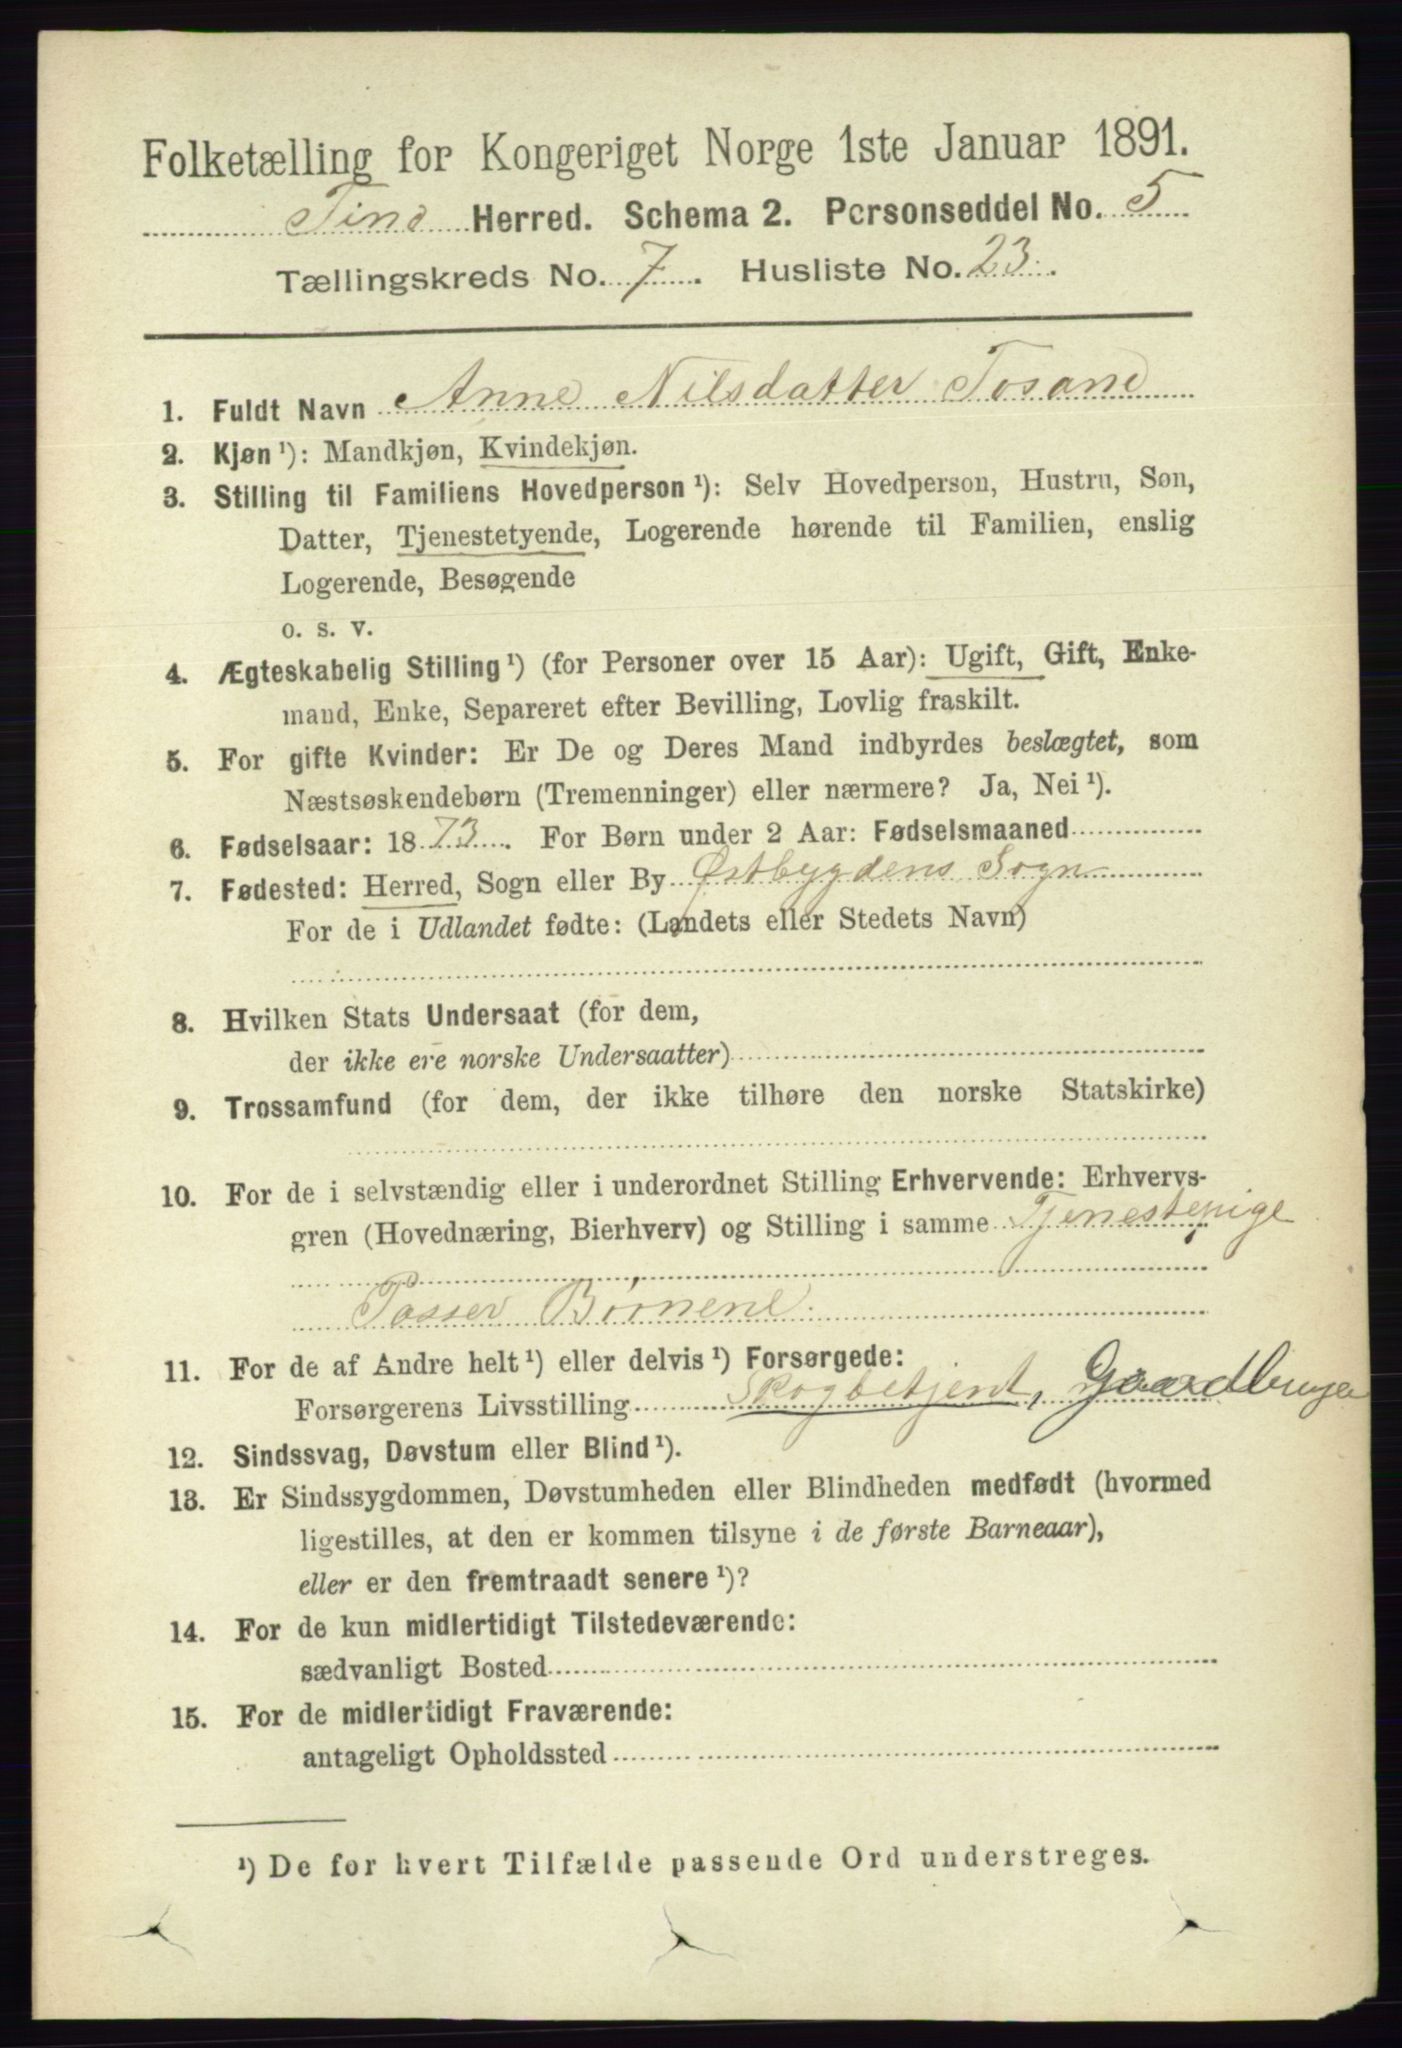 Folketælling for Kongeriget Norge 1ste Januar 1891.
Tind Herred. Schema 2. Personseddel No. 5
Tællingskreds No. 7. Husliste No. 23.
1. Fuldt Navn Anne Nilsdatter Tosand
2. Kjøn ¹): Mandkjøn, Kvindekjøn.
3. Stilling til Familiens Hovedperson ¹): Selv Hovedperson, Hustru, Søn,
Datter, Tjenestetyende, Logerende hørende til Familien, enslig
Logerende, Besøgende
o. s. v.
4. Ægteskabelig Stilling ¹) (for Personer over 15 Aar): Ugift, Gift, Enke-
mand, Enke, Separeret efter Bevilling, Lovlig fraskilt.
5. For gifte Kvinder: Er De og Deres Mand indbyrdes beslægtet, som
Næstsøskendebørn (Tremenninger) eller nærmere? Ja, Nei ¹).
6. Fødselsaar: 1873. For Børn under 2 Aar: Fødselsmaaned
7. Fødested: Herred, Sogn eller By Østbygdens Sogn
For de i Udlandet fødte: (Landets eller Stedets Navn)
8. Hvilken Stats Undersaat (for dem,
der ikke ere norske Undersaatter)
9. Trossamfund (for dem, der ikke tilhøre den norske Statskirke)
10. For de i selvstændig eller i underordnet Stilling Erhvervende: Erhvervs-
gren (Hovednæring, Bierhverv) og Stilling i samme Tjenestepige
Passer Børnene.
11. For de af Andre helt ¹) eller delvis ¹) Forsørgede:
Forsørgerens Livsstilling Skogbetjent, Gaardbruger
12. Sindssvag, Døvstum eller Blind ¹).
13. Er Sindssygdommen, Døvstumheden eller Blindheden medfødt (hvormed
ligestilles, at den er kommen tilsyne i de første Barneaar),
eller er den fremtraadt senere ¹)?
14. For de kun midlertidigt Tilstedeværende:
sædvanligt Bosted
15. For de midlertidigt Fraværende:
antageligt Opholdssted
¹) De for hvert Tilfælde passende Ord understreges.